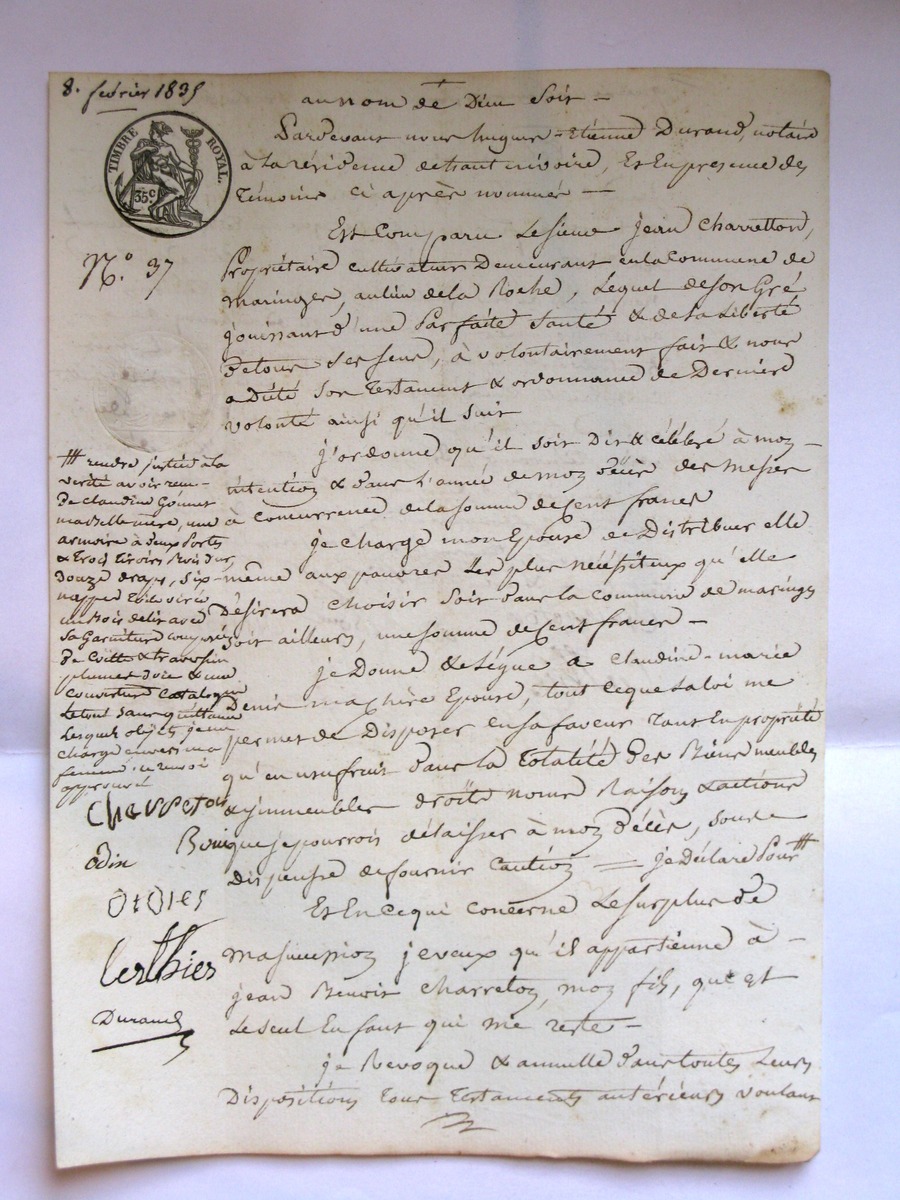 8. février 1835
au nom de Dieu Soit -
TIMBRE ROYAL.
35c
N.° 37
Pardevant nous hugues-Etienne Durand, notaire
à la résidence de haut rivoire, Et En presence des
témoins ci après nommés -
Est Comparu Le Sieur jean Charretton,
Propriétaire cultivateur Demeurant en la Commune de
maringes, au lieu de la Roche, Lequel de son Gré
jouissant d'une Parfaite Santé & de la Liberté
De tous ses sens, à volontairement fait & nous
a Dicté Son testament & ordonnance de Derniere
volonté ainsi qu'il suit
j'ordonne qu'il soit Dit & célébré à moz -
intentioz & Dans l'année de moz Décès des messes
à concurrence de la somme de Cent francs
je charge mon Epouse de Distribuer elle
-même aux pauvres les plus nécéssiteux qu'elle
Désirera choisir soit Dans la Commune de maringes
soit ailleurs, une somme de Cent francs -
je Donne & Légue a Claudine-marie
Denis ma chère Epouse, tout ce que la loi me
permet de Disposer en sa faveur tant En propriété
qu'en usufruit Dans la totalité des Biens meubles
& immeubles droits noms Raisons & actions
que je pourrois délaisser à moz Décès, sous la
dispense de fournir Cautioz = je Déclare Pour #
Et En ce qui concerne Le surplus de
ma successioz je veux qu'il appartienne à -
jean Benoit Charretoz, moz fils, qui est
Le seul Enfant qui me reste -
je Revoque & annulle Dans toutes Leurs
Dispositions tous testaments antérieurs voulant
# rendre justice à la
verité avoir reçu
De Claudine
ma belle mère, une
armoire à Deux Portes
& trois tiroirs Bois dur
Douze draps, six
nappes
un Bois de lit avec
sa Garniture composée
De Coitte & traversin
plumes d'oie & une
Couverture Catalogne
Le tout sans quittance
Lesquels objets je me
charge envers ma
femme ; ce renvoi
approuvé
Charretoz
Odin
Berthier
Durand